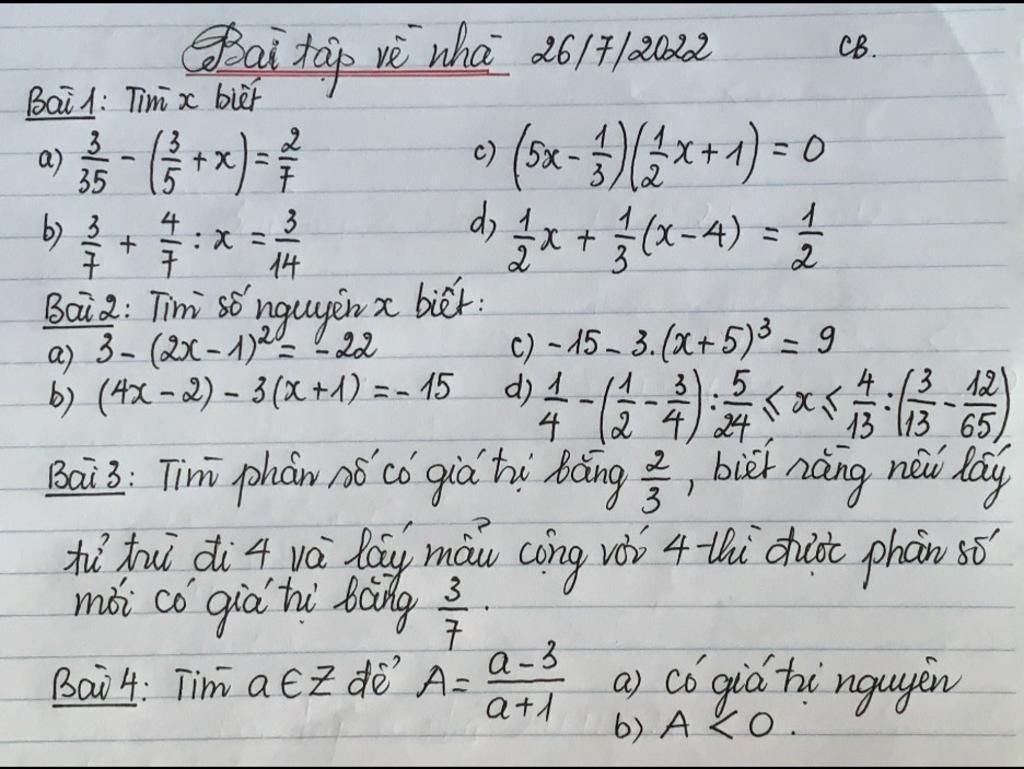 Bài tập về nhà 26/7/2022 CB.
Bài 1: Tìm x biết
a) 3/35 - (3/5 + x) = 2/7 c) (5x - 1/3)(1/2 x + 1) = 0
b) 3/7 + 4/7 : x = 3/14 d) 1/2 x + 1/3 (x - 4) = 1/2
Bài 2: Tìm số nguyên x biết:
a) 3 - (2x - 1)² = -22 c) -15 - 3.(x + 5)³ = 9
b) (4x - 2) - 3(x + 1) = -15 d) 1/4 - (1/2 - 3/4) : 5/24 ⩽ x ⩽ 4/13 : (3/13 - 12/65)
Bài 3: Tìm phân số có giá trị bằng 2/3, biết rằng nếu lấy
tử trừ đi 4 và lấy mẫu cộng với 4 thì được phân số
mới có giá trị bằng 3/7.
Bài 4: Tìm a ∈ Z để A = (a - 3)/(a + 1) a) có giá trị nguyên
b) A < 0.